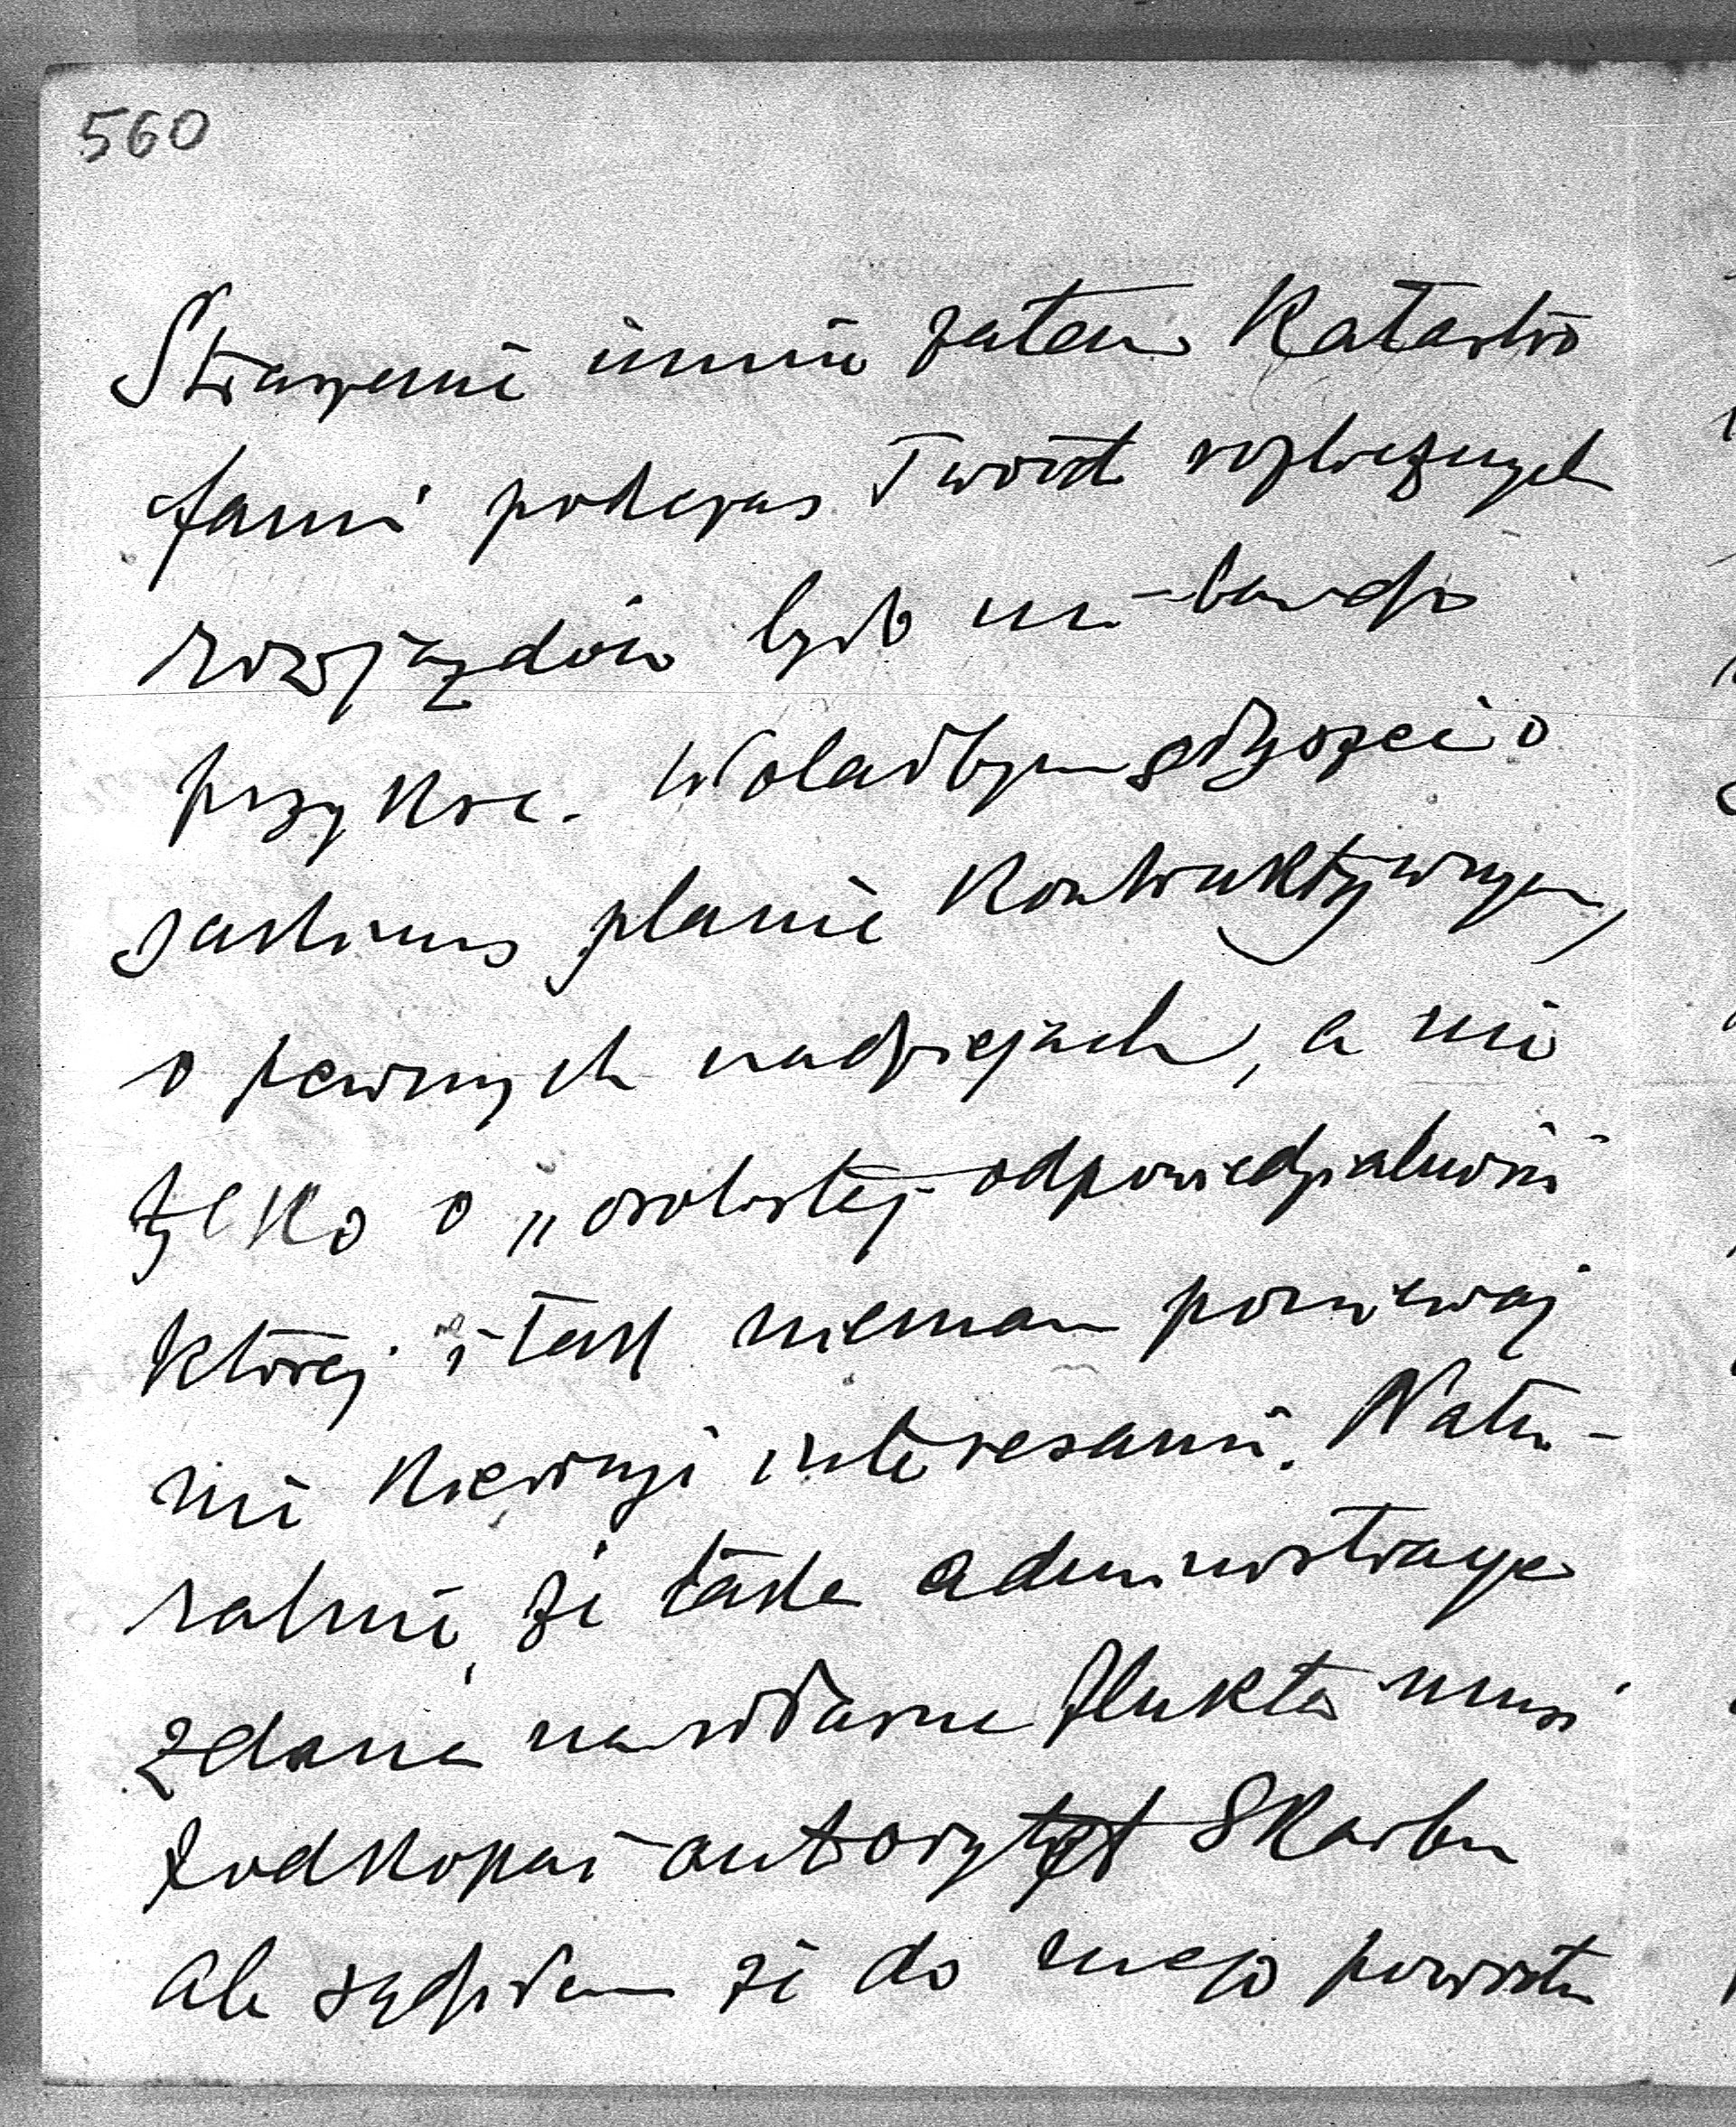 560
Straszenie mnie zatem Katastro
fami podczas Twoich rozlicznych
rozjazdów było mi bardzo
przykre. Wolałbym słyszeć o
jakimś planie Kontruktywnym,
o pewnych nadziejach, a nie
tylko o „osobistej odpowiedzialności
której i tak nie mam ponieważ
nie kieruję interesami. Natu-
ralnie, że taka administracja
zdana na własne flukta musi
podkopać autorytet Skarbu
ale sądziłem że do mego powrotu